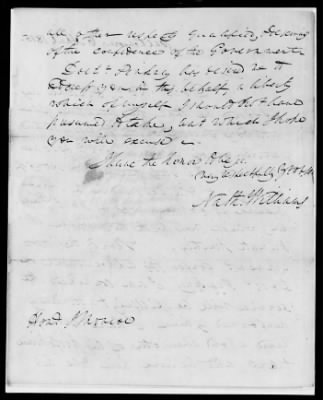 all other respects qualified, & deserving
of the confidence of the Government
Doct. Pendergrast has desired me to
address you in this behalf, a liberty
which of myself I should not have
presumed to take, but which I hope
you will excuse —
I have the honor to be, sir
very respectfully
Nath. Williams
Honl. J Monroe